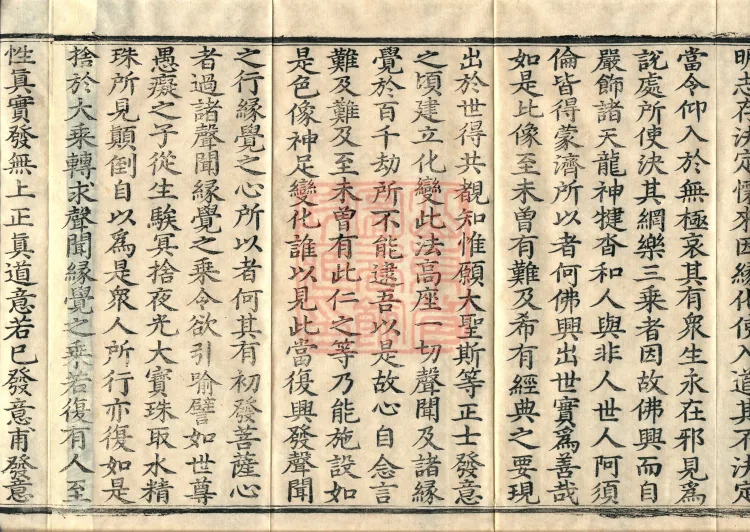 當令仰入於無極哀其有衆生永在邪見爲
說處所使決其網樂三乘者因故佛興而自
嚴飾諸天龍神犍沓和人與非人世人阿須
倫皆得蒙濟所以者何佛興出世實爲善哉
如是比像至未曾有難及希有經典之要現
出於世得共覩知惟願大聖斯等正士發意
之頃建立化變此法高座一切聲聞及諸緣
覺於百千劫所不能逮吾以是故心自念言
難及難及至未曾有此仁之等乃能施設如
是色像神足變化誰以見此當復興發聲聞
之行緣覺之心所以者何其有初發菩薩心
者過諸聲聞緣覺之乘令欲引喻譬如世尊
愚癡之子從生騃冥捨夜光大寶珠取水精
珠所見顛倒自以爲是衆人所行亦復如是
捨於大乘轉求聲聞緣覺之乘若復有人至
性眞實發無上正眞道意若已發意甫發意